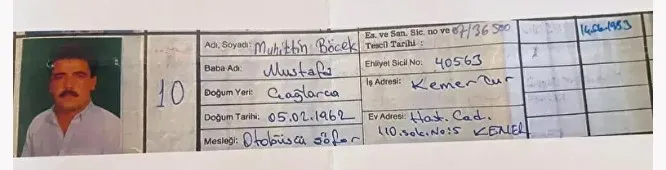 10
Adı, Soyadı: Muhittin Böcek
Baba Adı: Mustafa
Doğum Yeri: Çağlarca
Doğum Tarihi: 05.02.1962
Mesleği: Otobüscü Şöför
Es. ve San. Sic. no ve 07/36500
Tescil Tarihi :
Ehliyet Sicil No: 40563
İş Adresi: Kemer Tur
Ev Adresi: Hast. Cad.
110.sok.No:5 KEMER